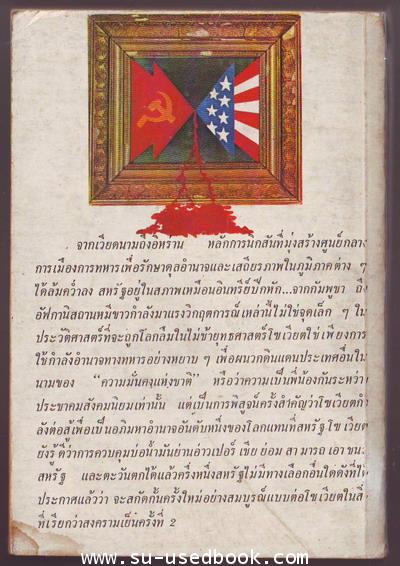 จากเวียดนามถึงอิหร่าน หลักการนิกสันที่มุ่งสร้างศูนย์กลาง
การเมืองการทหารเพื่อรักษาดุลอำนาจและเสถียรภาพในภูมิภาคต่าง ๆ
ได้ล้มคว่ำลง สหรัฐอยู่ในสภาพเหมือนอินทรีย์ปีกหัก...จากกัมพูชา ถึง
อัฟกานิสถานหมีขาวกำลังมาแรงวิกฤตการณ์เหล่านี้ไม่ใช่จุดเล็ก ๆ ใน
ประวัติศาสตร์ที่จะถูกโลกลืมในไม่ช้ายุทธศาสตร์โซเวียตใช่เพียงการ
ใช้กำลังอำนาจทางทหารอย่างหยาบ ๆ เพื่อผนวกดินแดนประเทศอื่นใน
นามของ “ความมั่นคงแห่งชาติ” หรือว่าความเป็นพี่น้องกันระหว่าง
ประชาคมสังคมนิยมเท่านั้น แต่เป็นการพิสูจน์ครั้งสำคัญว่าโซเวียตกำ
ลังต่อสู้เพื่อเป็นอภิมหาอำนาจอันดับหนึ่งของโลกแทนที่สหรัฐ โซเวียต
ยังรู้ดีว่าการควบคุมบ่อน้ำมันย่านอ่าวเปอร์เซีย ย่อมสามารถเอาชนะ
สหรัฐ และตะวันตกได้แล้วครึ่งหนึ่งสหรัฐไม่มีทางเลือกอื่นใดดังที่ได้
ประกาศแล้วว่า จะสกัดกั้นครั้งใหม่อย่างสมบูรณ์แบบต่อโซเวียตในสิ่ง
ที่เรียกว่าสงครามเย็นครั้งที่ 2
www.su-usedbook.com